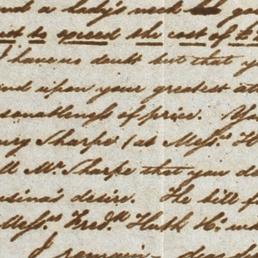 and a lady's
not to exceed the cost of £
I have no doubt but that y
and upon your greatest at
smallness of price. Yo
ry Sharpe (at Messrs. H
ll Mr. Sharpe that you de
usina's desire. The bill f
Messrs. Fredk. Huth & Co. wh
I remain dear